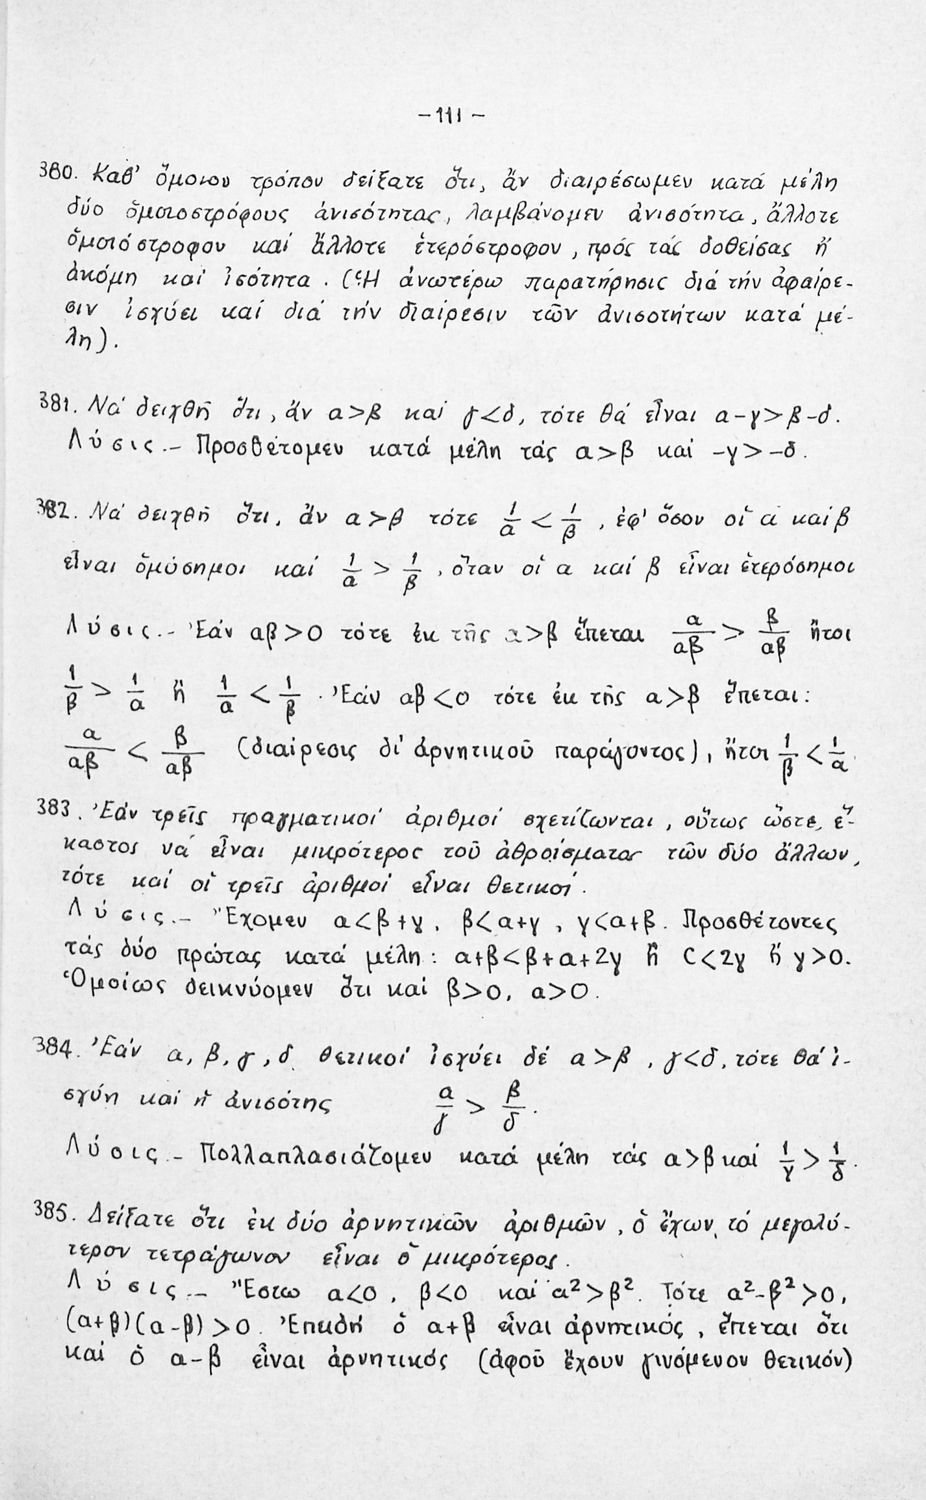 -111-
380. Καθ' ὅμοιον τρόπον δείξατε ὅτι, ἄν διαιρέσωμεν κατά μέλη
δύο ὁμοιοστρόφους ἀνισότητας, λαμβάνομεν ἀνισότητα, ἄλλοτε
ὁμοιόστροφον καί ἄλλοτε ἑτερόστροφον, πρός τάς δοθείσας ἤ
ἀκόμη καί ἰσότητα. (Ἡ ἀνωτέρω παρατήρησις διά τήν ἀφαίρε-
σιν ἰσχύει καί διά τήν διαίρεσιν τῶν ἀνισοτήτων κατά μέ-
λη).
381. Νά δειχθῆ ὅτι, ἄν α>β καί γ<δ, τότε θά εἶναι α-γ>β-δ.
Λύσις.- Προσθέτομεν κατά μέλη τάς α>β καί -γ>-δ.
382. Νά δειχθῆ ὅτι, ἄν α>β τότε 1/α < 1/β, ἐφ' ὅσον οἱ α καί β
εἶναι ὁμόσημοι καί 1/α > 1/β, ὅταν οἱ α καί β εἶναι ἑτερόσημοι
Λύσις.- Ἐάν αβ>0 τότε ἐκ τῆς α>β ἕπεται α/αβ > β/αβ ἤτοι
1/β > 1/α ἤ 1/α < 1/β. Ἐάν αβ<0 τότε ἐκ τῆς α>β ἕπεται:
α/αβ < β/αβ (διαίρεσις δι' ἀρνητικοῦ παράγοντος), ἤτοι 1/β < 1/α.
383. Ἐάν τρεῖς πραγματικοί ἀριθμοί σχετίζωνται, οὕτως ὥστε, ἕ-
καστος νά εἶναι μικρότερος τοῦ ἀθροίσματος τῶν δύο ἄλλων,
τότε καί οἱ τρεῖς ἀριθμοί εἶναι θετικοί.
Λύσις.- Ἔχομεν α<β+γ, β<α+γ, γ<α+β. Προσθέτοντες
τάς δύο πρώτας κατά μέλη: α+β<β+α+2γ ἤ 0<2γ ἤ γ>0.
Ὁμοίως δεικνύομεν ὅτι καί β>0, α>0.
384. Ἐάν α, β, γ, δ θετικοί ἰσχύει δέ α>β, γ<δ, τότε θά ἰ-
σχύη καί ἡ ἀνισότης α/γ > β/δ.
Λύσις.- Πολλαπλασιάζομεν κατά μέλη τάς α>β καί 1/γ > 1/δ.
385. Δείξατε ὅτι ἐκ δύο ἀρνητικῶν ἀριθμῶν, ὁ ἔχων τό μεγαλύ-
τερον τετράγωνον εἶναι ὁ μικρότερος.
Λύσις.- Ἔστω α<0, β<0 καί α²>β². Τότε α²-β²>0,
(α+β)(α-β)>0. Ἐπειδή ὁ α+β εἶναι ἀρνητικός, ἕπεται ὅτι
καί ὁ α-β εἶναι ἀρνητικός (ἀφοῦ ἔχουν γινόμενον θετικόν)